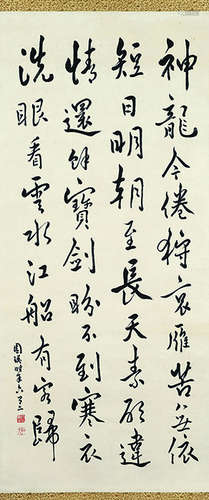 神龍今倦狩哀雁苦無依
短日明朝至長天素願違
情還餘寶劍盼不到寒衣
洗眼看雲水江船有客歸